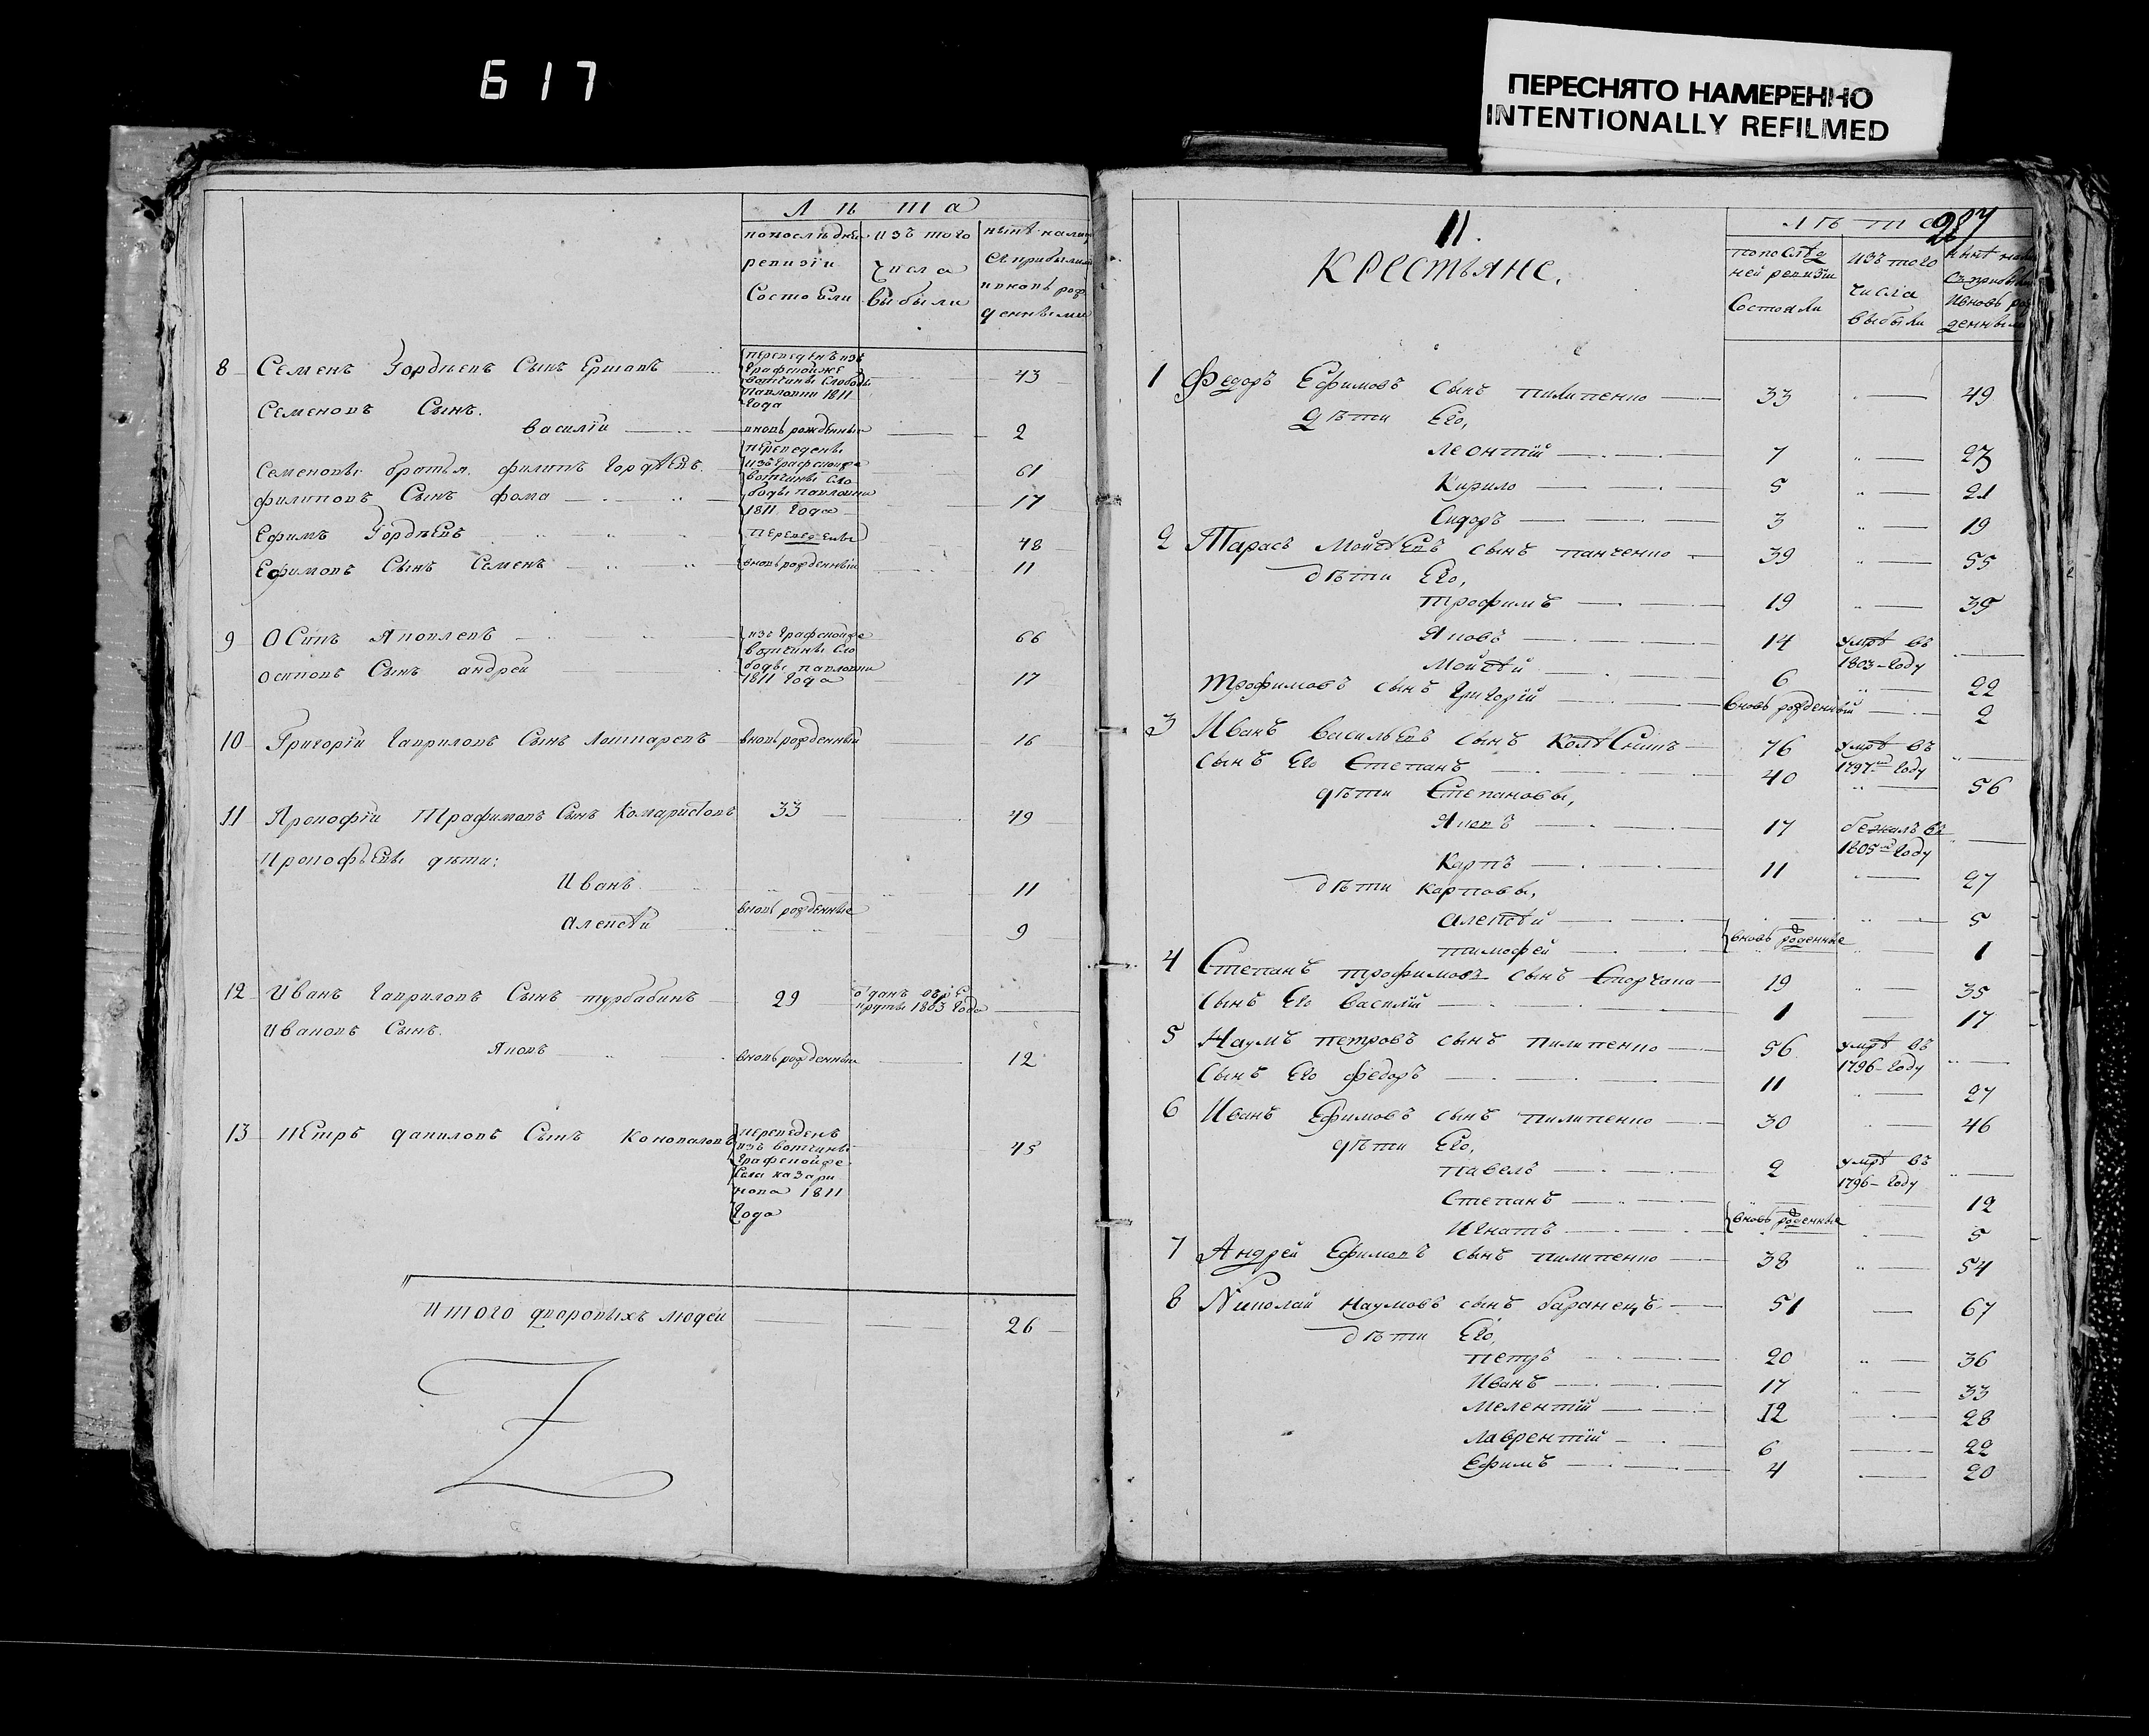 617
ПЕРЕСНЯТО НАМЕРЕННО
INTENTIONALLY REFILMED
Лѣта
попослѣдней ревизіи Состояли
изъ того числа выбыли
нынѣ налицо Съ прибылыми ивновь рожденными
8 Семенъ Гордѣевъ Сынъ Ершовъ переведенъ изъ Графскойже вотчины Слободы павловки 1811 Года 43
Семеновъ Сынъ.
василіи вновь рожденный 2
Семеновы братья. филипъ Гордѣевъ. переведены изъ Графскойже вотчины Слободы павловки 1811 Года 61
филиповъ Сынъ фома 17
Ефимъ Гордѣевъ переведены 48
Ефимовъ Сынъ Семенъ вновь рожденный 11
9 Осипъ Яковлевъ изъ Графскойже вотчины Слободы павловки 1811 Года 66
осиповъ Сынъ андрей 17
10 Григоріи Гавриловъ Сынъ Лоштаревъ вновь рожденный 16
11 Прокофіи Трафимовъ Сынъ Комаристовъ 33 49
прокофьевы дѣти:
Иванъ 11
вновь рожденные
алексѣй 9
12 Иванъ Гавриловъ Сынъ турбабинъ 29 отданъ въ рекруты 1803 Года
Ивановъ Сынъ.
Яковъ вновь рожденный 12
13 Петръ даниловъ Сынъ Коноваловъ переведенъ изъ вотчины Графскойже Села казаринова 1811 Года 45
Итого дворовыхъ людей 26
11.
Крестьяне.
Лѣта
287
попослѣдней ревизіи Состояли
изъ того числа выбыли
нынѣ налицо Съ прибылыми ивновь рожденными
1 Федоръ Ефимовъ сынъ пилипенко 33 49
дѣти Его,
леонтій 7 23
Кирило 5 21
Сидоръ 3 19
2 Тарасъ Мойсѣевъ сынъ панченко 39 55
дѣти Его,
трофимъ 19 35
Яковъ 14 умре въ 1803 Году
Мойсѣй 6 22
трофимовъ сынъ Григорій вновь рожденный 2
3 Иванъ васильевъ сынъ Колѣсникъ 76 умре въ 1797м Году
сынъ Его Степанъ 40 56
дѣти Степановы,
Яковъ 17 бежалъ въ 1805м Году
Карпъ 11 27
дѣти карповы,
алексѣй 5
вновь рожденные
тимофей 1
4 Степанъ трофимовъ сынъ Сторчака 19 35
сынъ Его василій 1 17
5 Наумъ петровъ сынъ пилипенко 56 умре въ 1796 Году
сынъ Его федоръ 11 27
6 Иванъ Ефимовъ сынъ пилипенко 30 46
дѣти Его,
павелъ 2 умре въ 1796 Году
Степанъ 12
вновь рожденные
Игнатъ 5
7 Андрей Ефимовъ сынъ пилипенко 38 54
8 Николай Наумовъ сынъ баранецъ 51 67
дѣти Его,
петръ 20 36
Иванъ 17 33
мелентій 12 28
лаврентій 6 22
Ефимъ 4 20